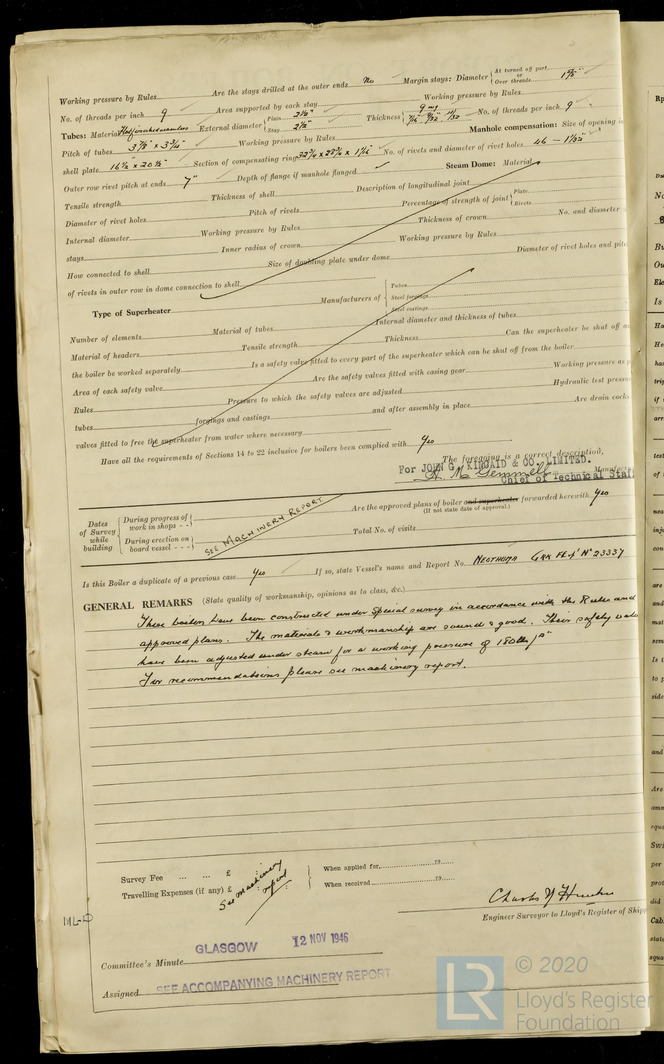 Working pressure by Rules Are the stays drilled at the outer ends No Margin stays: Diameter { At turned off part, or Over threads
No. of threads per inch 9 Area supported by each stay Working pressure by Rules
Tubes: Material External diameter { Plain 2½" Stay 2½" Thickness { 9 wg 5/32 No. of threads per inch 9
Pitch of tubes Working pressure by Rules Manhole compensation: Size of opening in
shell plate 16½" × 20½" Section of compensating ring No. of rivets and diameter of rivet holes 46 -
Outer row rivet pitch at ends 7" Depth of flange if manhole flanged Steam Dome: Material
Tensile strength Thickness of shell Description of longitudinal joint
Diameter of rivet holes Pitch of rivets Percentage of strength of joint { Plate Rivets
Internal diameter Working pressure by Rules Thickness of crown No. and diameter
stays Inner radius of crown Working pressure by Rules
How connected to shell Size of doubling plate under dome Diameter of rivet holes and pitch
of rivets in outer row in dome connection to shell
Type of Superheater Manufacturers of { Tubes Steel forgings Steel castings
Number of elements Material of tubes Internal diameter and thickness of tubes
Material of headers Tensile strength Thickness Can the superheater be shut off
the boiler be worked separately Is a safety valve fitted to every part of the superheater which can be shut off from the boiler
Area of each safety valve Are the safety valves fitted with easing gear Working pressure as
Rules Pressure to which the safety valves are adjusted Hydraulic test pressure
tubes forgings and castings and after assembly in place Are drain cocks
valves fitted to free the superheater from water where necessary
Have all the requirements of Sections 14 to 22 inclusive for boilers been complied with Yes
The foregoing is a correct description,
For JOHN G. KINCAID & CO. LIMITED.
Manufact
Chief of Technical Staff
Dates of Survey while building { During progress of work in shops - - } { During erection on board vessel - - - }
SEE MACHINERY REPORT
Are the approved plans of boiler and superheater forwarded herewith Yes
(If not state date of approval.)
Total No. of visits
Is this Boiler a duplicate of a previous case Yes If so, state Vessel's name and Report No. NEOTHUMA GRK FE Jl No 23337
GENERAL REMARKS (State quality of workmanship, opinions as to class, &c.)
These boilers have been constructed under special survey in accordance with the Rules and
approved plans. The materials & workmanship are sound & good. Their safety valves
have been adjusted under steam for a working pressure of 180 lbs/□"
For recommendations please see machinery report.
Survey Fee ... ... £
Travelling Expenses (if any) £
See machinery report
When applied for 19
When received 19
Engineer Surveyor to Lloyd's Register of Shipp
GLASGOW 12 NOV 1946
Committee's Minute
Assigned SEE ACCOMPANYING MACHINERY REPORT
LR
© 2020
Lloyd's Register
Foundation